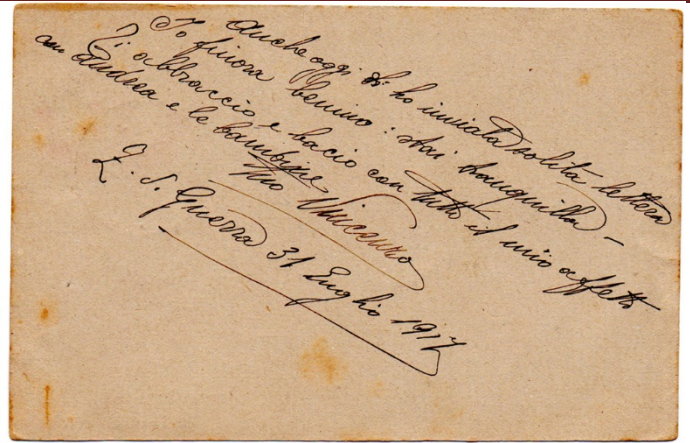 Anche oggi ti ho inviata solita lettera
Io finora benino: stai tranquilla -
Ti abbraccio e bacio con tutto il mio affetto
con Andrea e le bambine
tuo Vincenzo
Z. d. Guerra 31 Luglio 1917